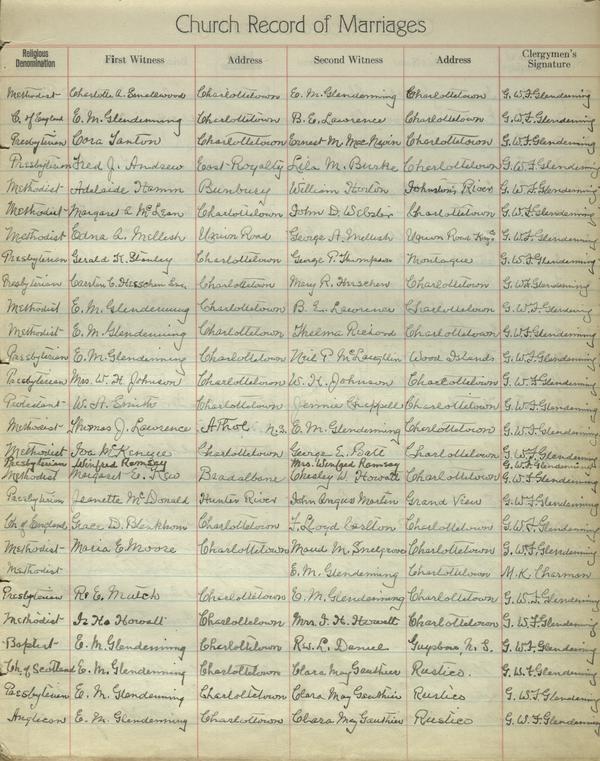 Church Record of Marriages
Religious Denomination First Witness Address Second Witness Address Clergymen's Signature
Methodist Charlotte A. Smallwood Charlottetown E. M. Glendenning Charlottetown G. W. F. Glendenning
C. of England E. M. Glendenning Charlottetown B. E. Lawrence Charlottetown G. W. F. Glendenning
Presbyterian Cora Tanton Charlottetown Ernest M. MacNevin Charlottetown G. W. F. Glendenning
Presbyterian Fred J. Andrew East Royalty Lila M. Burke Charlottetown G. W. F. Glendenning
Methodist Adelaide Hamm Bunbury William Horton Johnston's River G. W. F. Glendenning
Methodist Margaret A McLean Charlottetown John D. Webster Charlottetown G. W. F. Glendenning
Methodist Edna A. Mellish Union Road George A. Mellish Union Road G. W. F. Glendenning
Presbyterian Gerald H. Stanley Charlottetown George P. Thompson Montague G. W. F. Glendenning
Presbyterian Charlottetown Mary R. Charlottetown G. W. F. Glendenning
Methodist E. M. Glendenning Charlottetown B. E. Lawrence Charlottetown G. W. F. Glendenning
Methodist E. M. Glendenning Charlottetown Thelma Charlottetown G. W. F. Glendenning
Presbyterian E. M. Glendenning Charlottetown Neil P. McLaughlin Wood Islands G. W. F. Glendenning
Presbyterian Mrs. W. H. Johnson Charlottetown W. H. Johnson Charlottetown G. W. F. Glendenning
Protestant W. A. Smith Charlottetown Jennie Chappell Charlottetown G. W. F. Glendenning
Methodist Thomas J. Lawrence Athol N.S. E. M. Glendenning Charlottetown G. W. F. Glendenning
Methodist Iva McKenzie Charlottetown George E. Ball Charlottetown G. W. F. Glendenning
Presbyterian Winfred Ramsay Mrs. Winfred Ramsay G. W. F. Glendenning
Methodist Margaret E. Bradalbane Chesley W. Howatt Charlottetown G. W. F. Glendenning
Presbyterian Jeanette McDonald Hunter River John Angus Martin Grand View G. W. F. Glendenning
Ch. of England Grace D. Charlottetown F. Lloyd Carlton Charlottetown G. W. F. Glendenning
Methodist Maria E Moore Charlottetown Maud M. Snelgrove Charlottetown G. W. F. Glendenning
Methodist E. M. Glendenning Charlottetown M. K. Charman
Presbyterian R. E. Mutch Charlottetown E. M. Glendenning Charlottetown G. W. F. Glendenning
Methodist Howatt Charlottetown Mrs. I. H. Howatt Charlottetown G. W. F. Glendenning
Baptist E. M. Glendenning Charlottetown Rev. L. Daniel Guysboro N. S. G. W. F. Glendenning
Ch. of Scotland E. M. Glendenning Charlottetown Clara May Gauthier Rustico. G. W. F. Glendenning
Presbyterian E. M. Glendenning Charlottetown Clara May Gauthier Rustico G. W. F. Glendenning
Anglican E. M. Glendenning Charlottetown Clara May Gauthier Rustico G. W. F. Glendenning